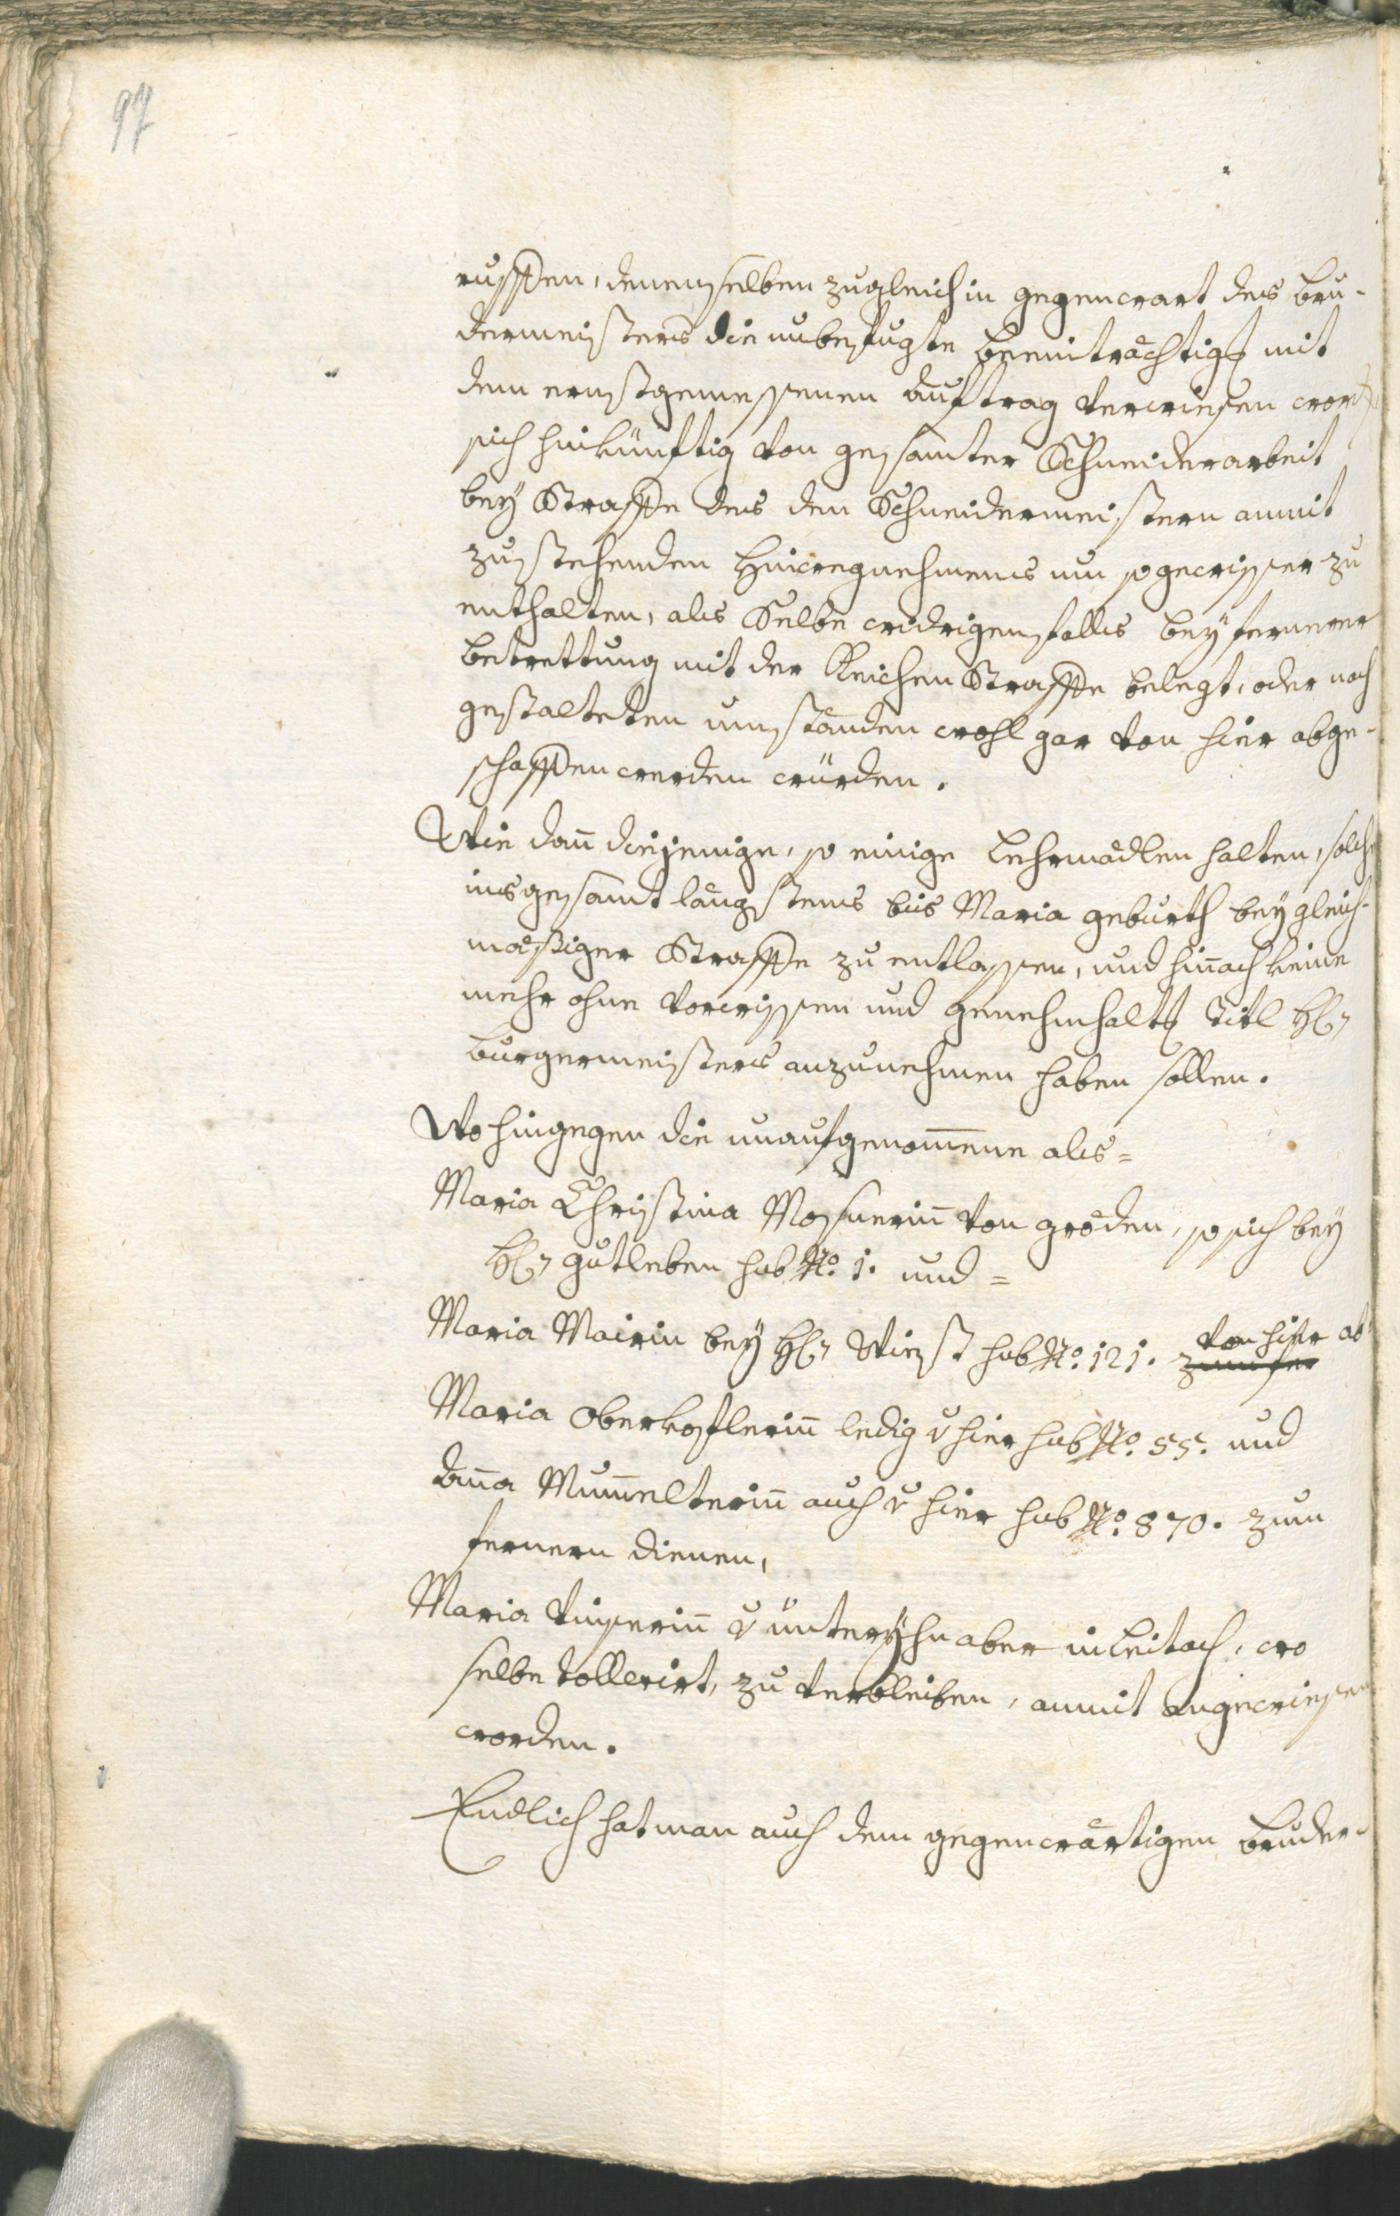 97
ruffen, denenselben zugleich in gegenwart des Bru-
dermeisters die unbefugte Beeinträchtig mit
dem ernstgemessenen Auftrag verwiesen word
sich hinkünftig von gesamter Schneiderarbeit
bey Straffe des den Schneidermeistern anmit
zustehenden Hinwegnehmens um so gewisser zu
enthalten, als Selbe widrigenfalls bey fernerer
betrettung mit der Keichen Straffe belegt, oder nach
gestalteten umständen wohl gar von hier abge-
schaffen werden würden.
Wie dan̄ diejenige, so einige Lehrmädlen halten, solche
insgesamt längstens bis Maria geburth bey gleich-
mässiger Straffe zu entlassen, und hinnach keine
mehr ohne vorwissen und genehmhalts Titl H:
Burgermeisters anzunehmen haben sollen.
Wohingegen die unaufgenom̄ene als=
Maria Christina Mosnerin̄ von gröden, so sich bey
H: gutleben hab No: 1. und=
Maria Mairin bey H: Wirst hab No: 121. von hier ab
Maria Oberkoflerin̄ ledig v hier hab No: 55. und
An̄a Mum̄elterin̄ auch v hier hab No: 870. zum
fernern dienen,
Maria Vinserin̄ v unter aber in Leitach, wo
selbe tollerirt, zu verbleiben, anmit angewiesen
worden.
Endlich hat man auch dem gegenwärtigen Bruder-